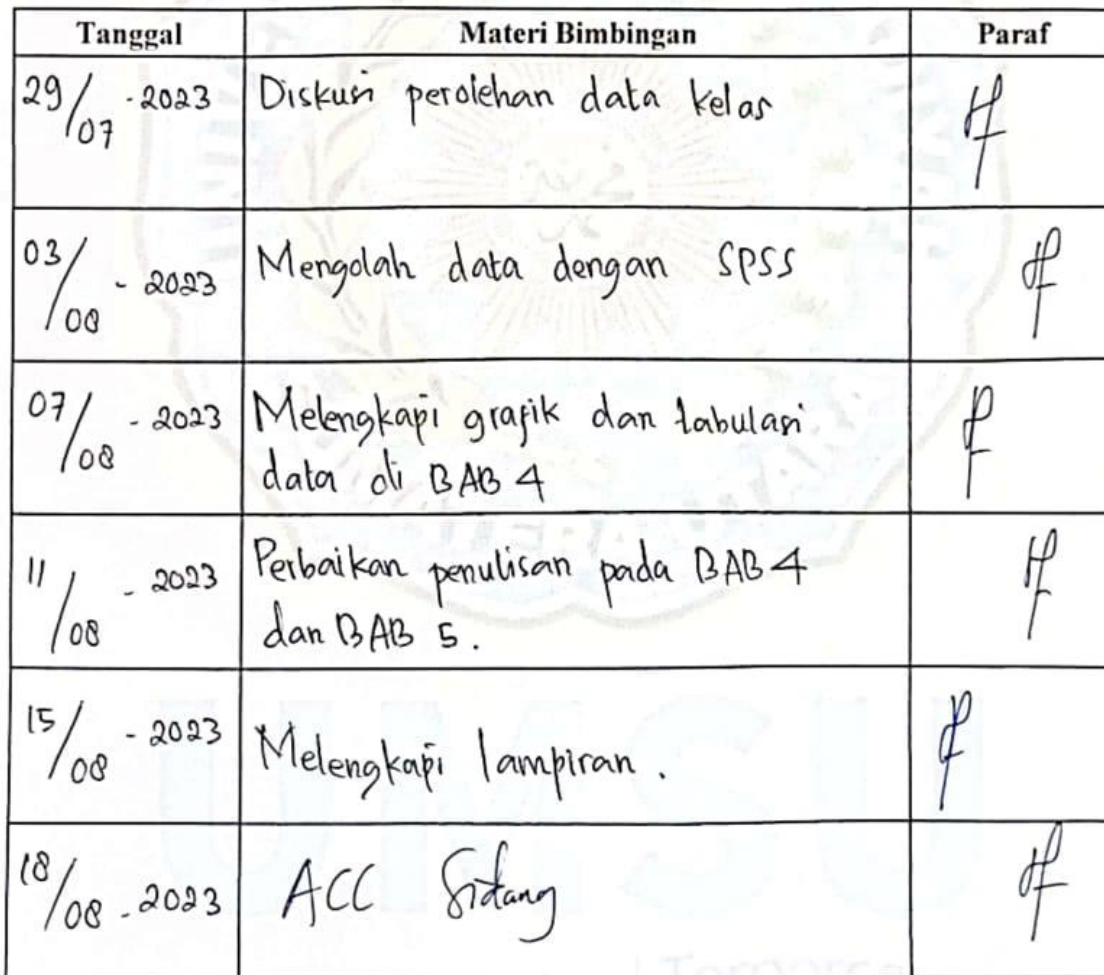 Tanggal Materi Bimbingan Paraf
29/07 - 2023 Diskusi perolehan data kelas
03/08 - 2023 Mengolah data dengan SPSS
07/08 - 2023 Melengkapi grafik dan tabulasi
data di BAB 4
11/08 - 2023 Perbaikan penulisan pada BAB 4
dan BAB 5.
15/08 - 2023 Melengkapi lampiran.
18/08 - 2023 ACC Sidang
UMSU